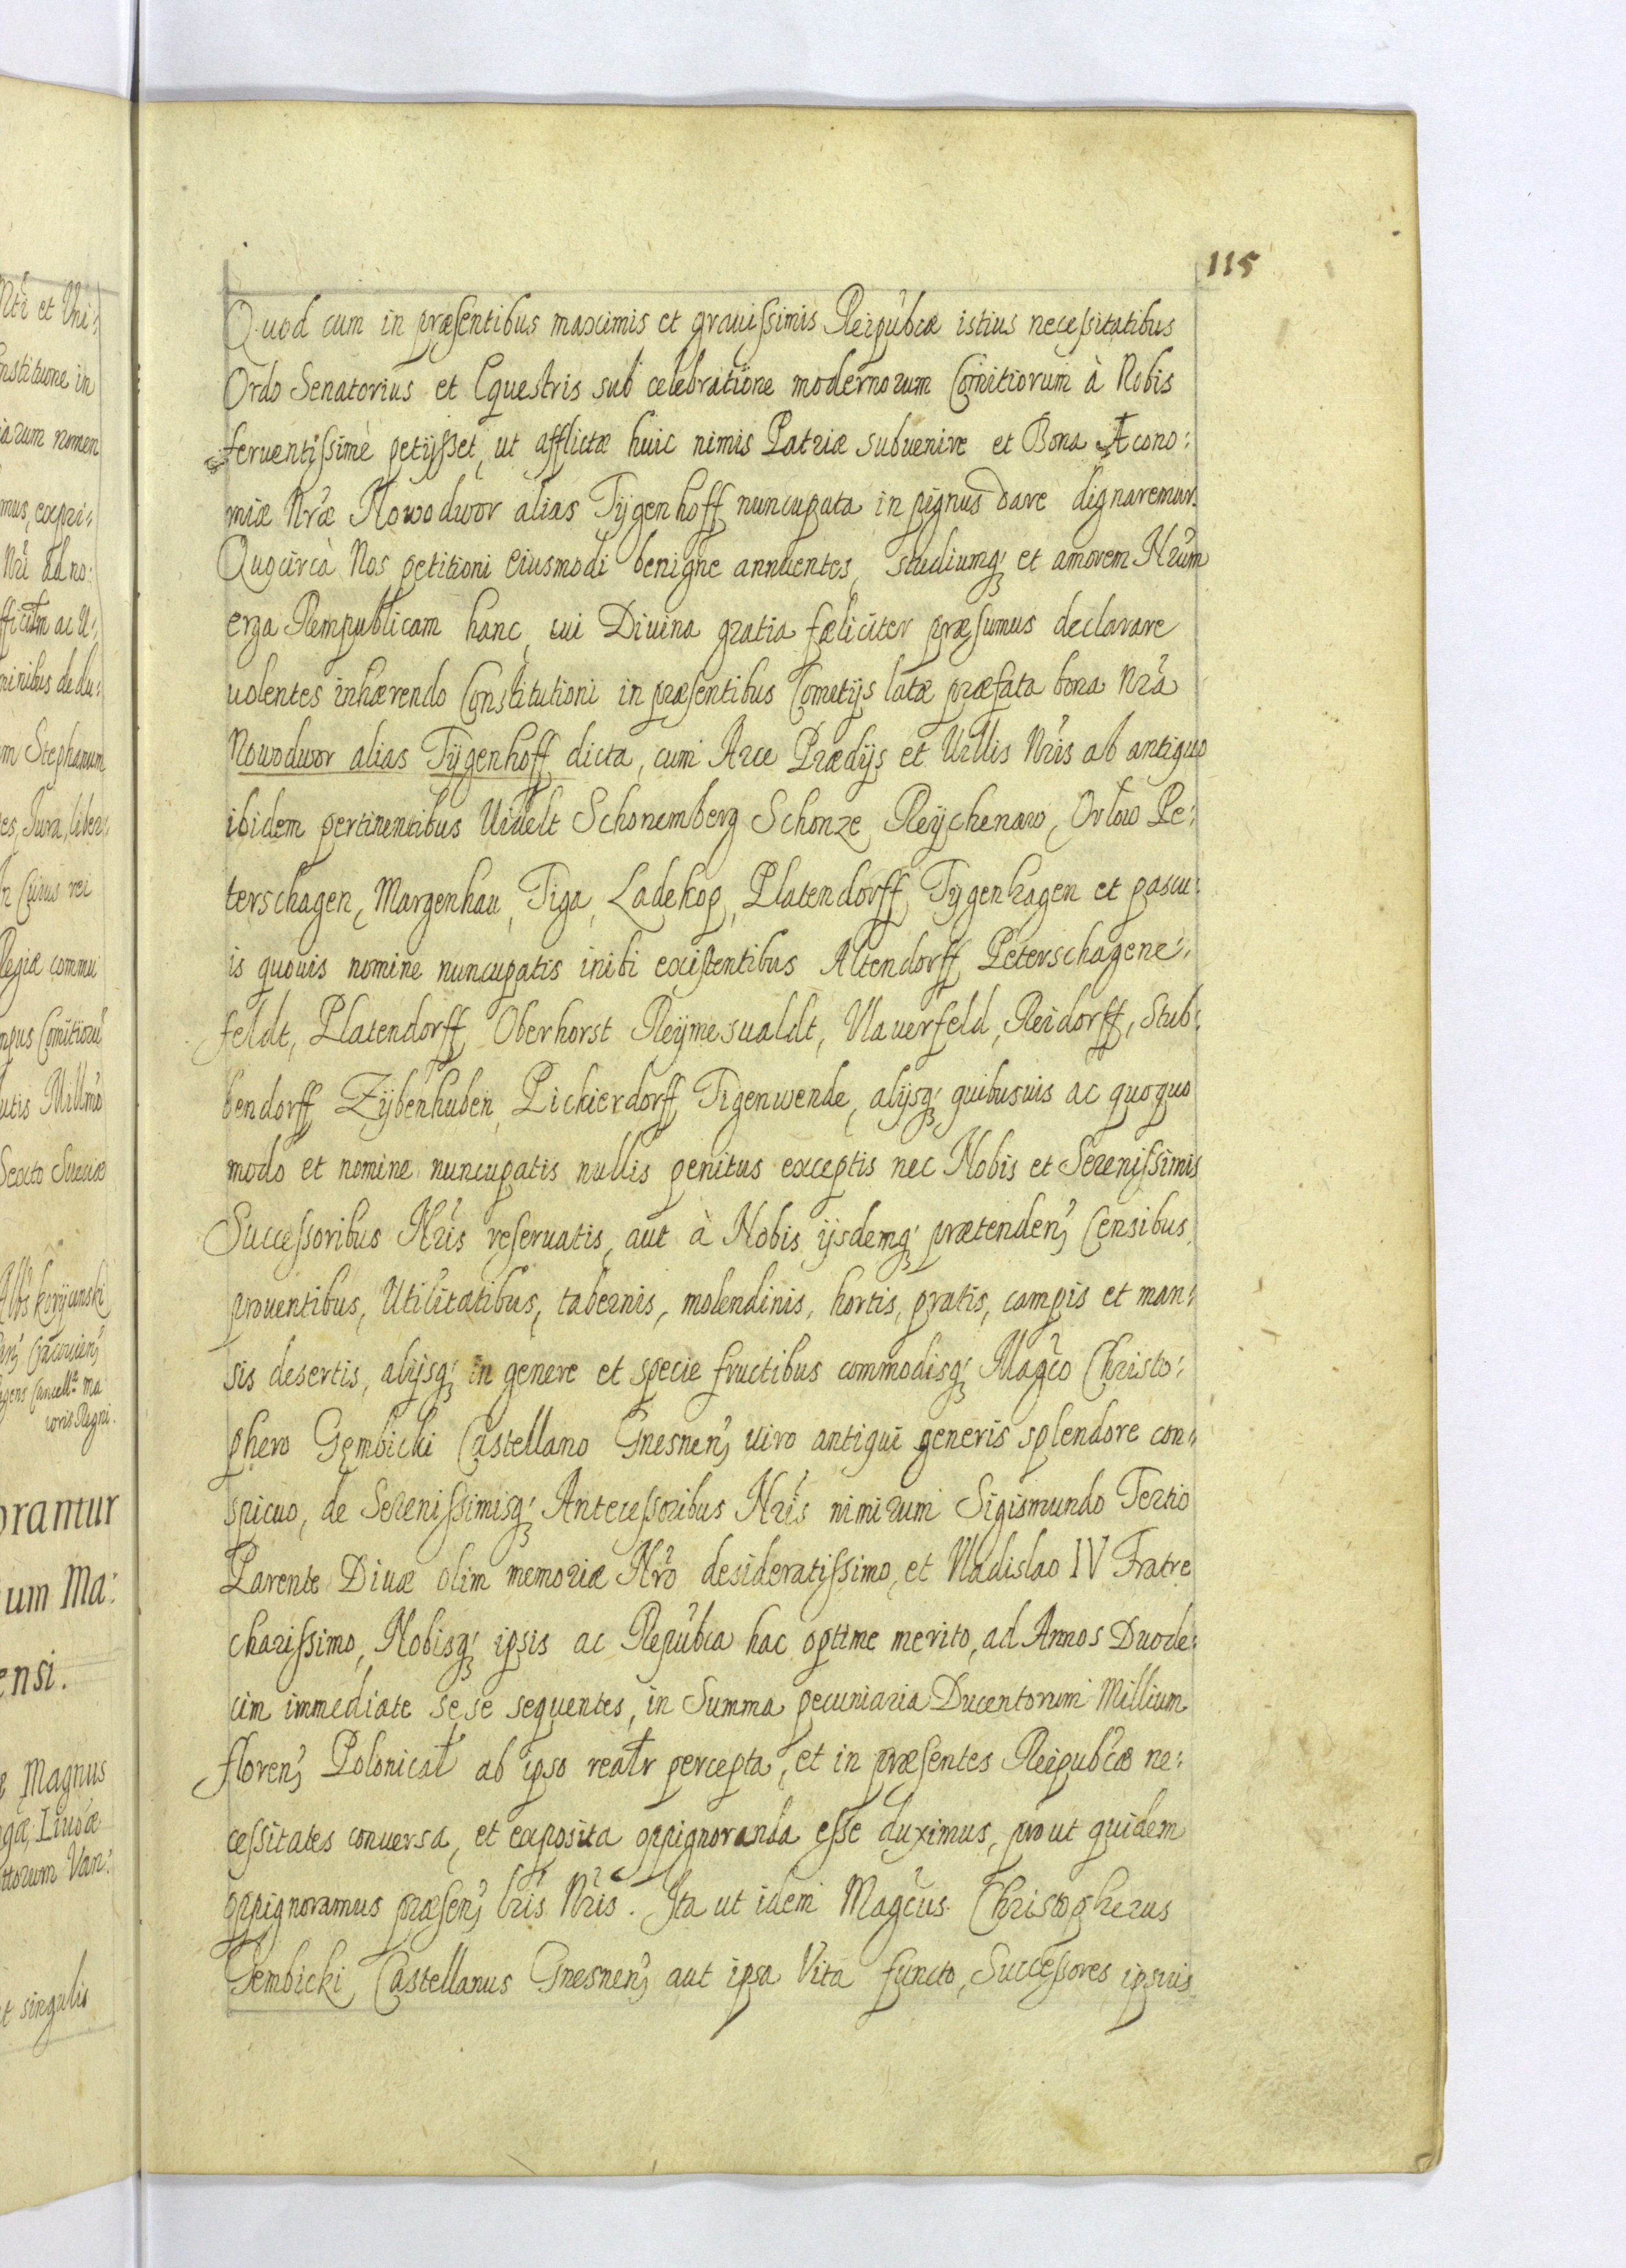 115
Quod cum in præsentibus maximis et grauissimis Reipubcæ istius necessitatibus
Ordo Senatorius et Equestris sub celebratione modernorum Comitiorum à Nobis
feruentissimè petijsset, ut afflictæ huic nimis Patriæ subuenire et Bona Æcono:
miæ Nræ Nowodwor alias Tÿgenhoff nuncupata in pignus dare dignaremur.
Quocircà Nos petitioni eiusmodi benigne annuentes, studiumq; et amorem Nrum
erga Rempublicam hanc, cui Diuina gratia fæliciter præsumus declarare
uolentes inhærendo Constitutioni in præsentibus Cometijs latæ præfata bona Nra
Nowodwor alias Tÿgenhoff dicta, cum Arce Prædijs et Uillis Nris ab antiquo
ibidem pertinentibus Uiuelt Schonemberg Schonze Reÿchenaw, Orlow Pe:
terschagen, Margenhau, Tiga, Ladekop, Platendorff Tÿgenhagen et pascu:
is quouis nomine nuncupatis inibi existentibus Altendorff Peterschagene:
feldt, Platendorff Oberhorst Reÿmesualdt, Nauerfeld, Reidorff, Stub:
bendorff Zÿbenhuben, Pickierdorff Tigenwende, alijsq; quibusuis ac quoquo
modo et nomine nuncupatis nullis penitus exceptis nec Nobis et Serenissimis
Successoribus Nris reseruatis, aut à Nobis ijsdemq; prætenden; Censibus
prouentibus, Utilitatibus, tabernis, molendinis, hortis, pratis, campis et man:
sis desertis, alijsq; in genere et specie fructibus commodisq; Magco Christo:
phero Gembicki Castellano Gnesnen; uiro antiqui generis splendore con:
spicuo, de Serenissimisq; Antecessoribus Nris nimirum Sigismundo Tertio
Parente Diuæ olim memoriæ Nro desideratissimo, et Vladislao IV Fratre
charissimo, Nobisq; ipsis ac Repubca hac optime merito, ad Annos Duode:
cim immediate sese sequentes, in Summa pecuniaria Ducentorum Millium
floren; Polonical ab ipso realr percepta, et in præsentes Reipubcæ ne:
cessitates conuersa, et exposita oppignoranda esse duximus, prout quidem
oppignoramus præsen; lris Nris. Ita ut idem Magcus Christopherus
Gembicki Castellanus Gnesnen; aut ipsa Vita functo, Successores ipsuis